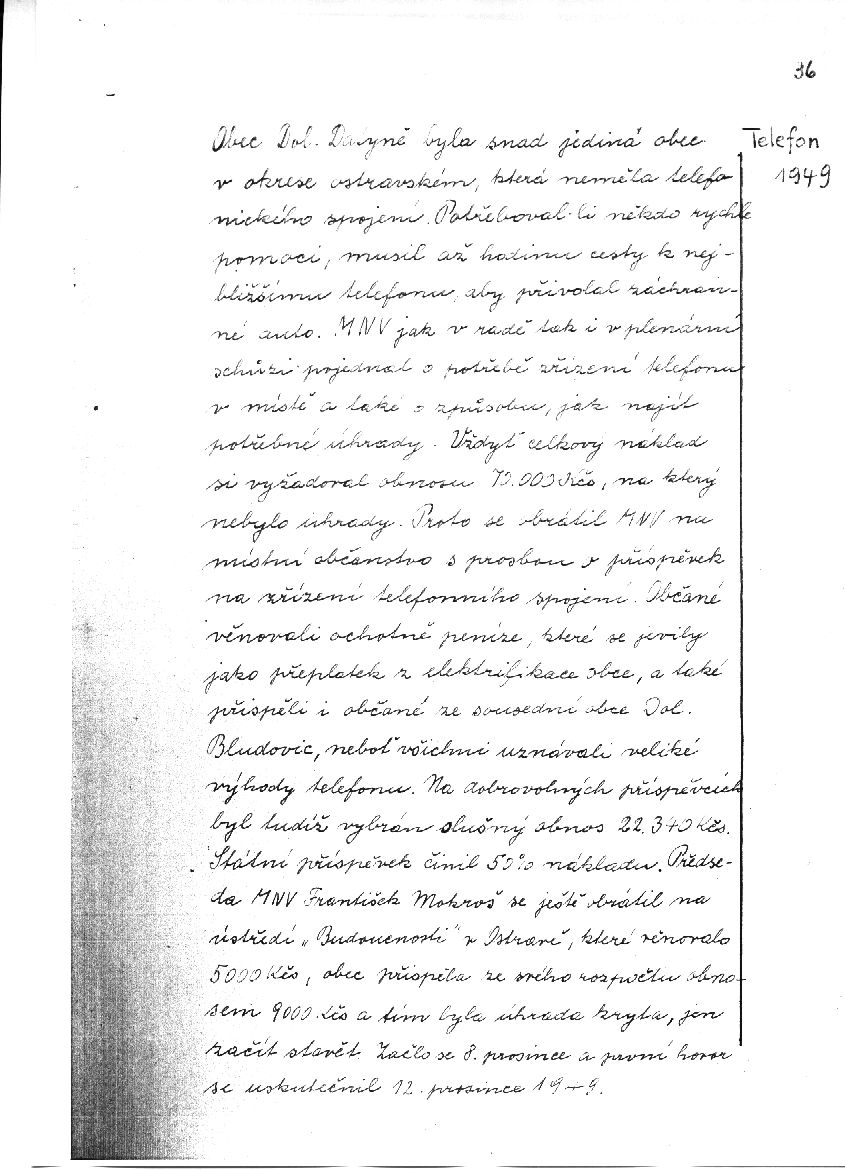 36
Telefon
1949
Obec Dol. Datyně byla snad jediná obec
v okrese ostravském, která neměla telefo
nického spojení. Potřeboval-li někdo rychle
pomoci, musil až hodinu cesty k nej-
bližšímu telefonu, aby přivolal záchran-
né auto. MNV jak v radě tak i v plenární
schůzi pojednal o potřebě zřízení telefonu
v místě a také o způsobu, jak najít
potřebné úhrady. Vždyť celkový náklad
si vyžadoval obnosu 70.000 Kčs, na který
nebylo úhrady. Proto se obrátil MNV na
místní občanstvo s prosbou o příspěvek
na zřízení telefonního spojení. Občané
věnovali ochotně peníze, které se jevily
jako přeplatek z elektrifikace obce, a také
přispěli i občané ze sousední obce Dol.
Bludovic, neboť všichni uznávali veliké
výhody telefonu. Na dobrovolných příspěvcích
byl tudíž vybrán slušný obnos 22.340 Kčs.
Státní příspěvek činil 50% nákladu. Předse-
da MNV František Mokroš se ještě obrátil na
ústředí „Budoucnosti" v Ostravě, které věnovalo
5000 Kčs, obec přispěla ze svého rozpočtu obno-
sem 9000 Kčs a tím byla úhrada kryta, jen
začít stavět. Začlo se 8. prosince a první hovor
se uskutečnil 12. prosince 1949.